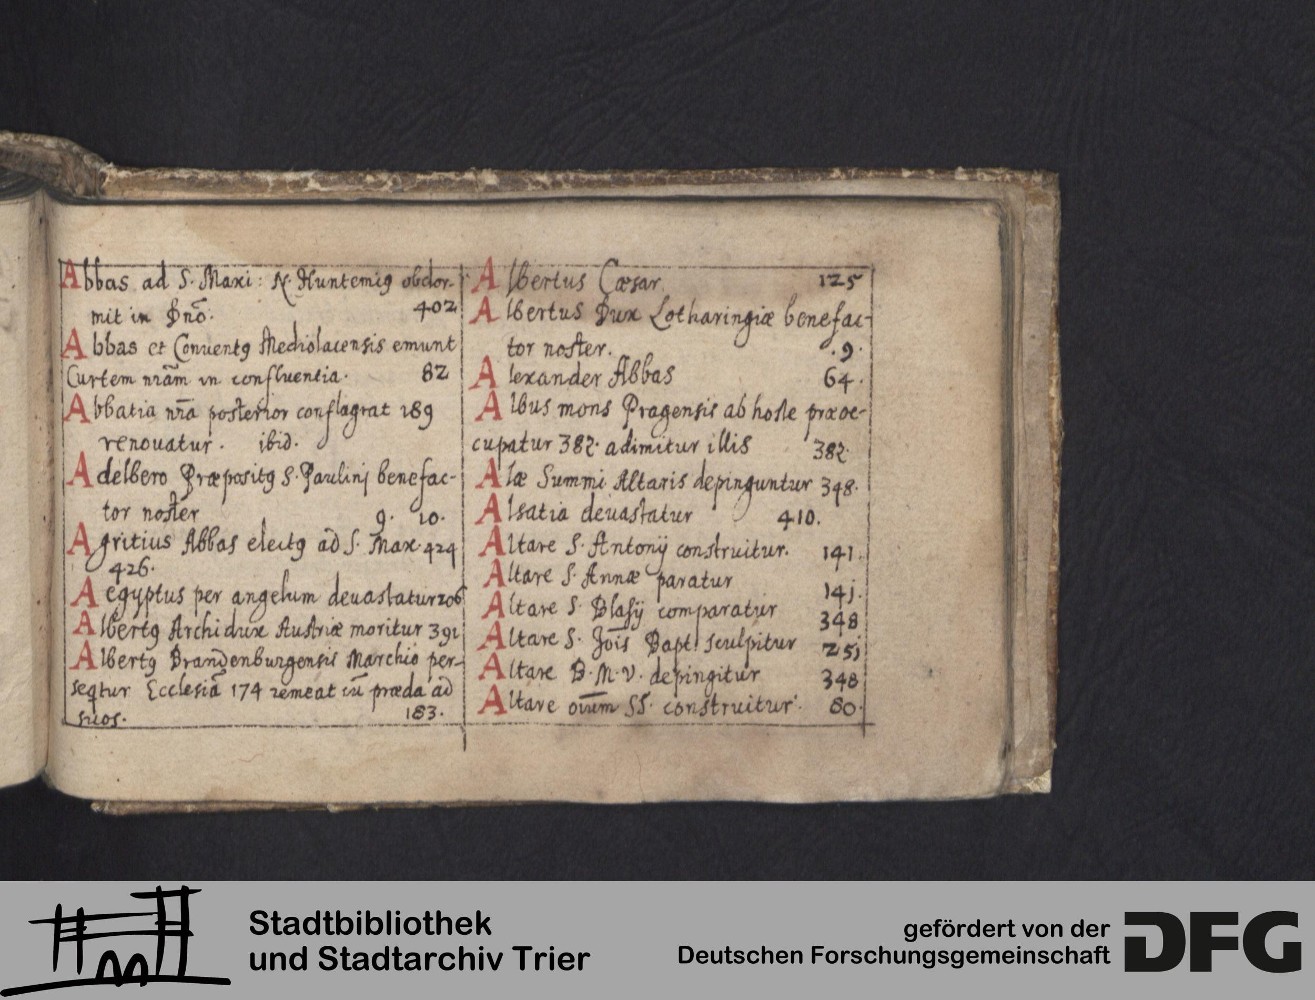 Abbas ad S. Maxi: N. Huntemiꝰ obdor-
mit in Dnõ. 402
Abbas et Conventꝰ Mediolacensis emunt
Curtem nrãm in confluentia. 82
Abbatia nrã posterior conflagrat 189
renouatur. ibid.
Adelbero Præpositꝰ S. Paulinj benefac-
tor noster 9. 10.
Agritius Abbas electꝰ ad S. Max. 424
426.
Aegyptus per angelum deuastatur 206
Albertꝰ Archidux Austriæ moritur 391
Albertꝰ Brandenburgensis Marchio per-
seqtur Ecclesiã 174 remeat cũ præda ad
suos. 183.
Albertus Cæsar. 125
Albertus Dux Lotharingiæ benefac-
tor noster. .9.
Alexander Abbas 64.
Albus mons Pragensis ab hoste præoc-
cupatur 382. adimitur illis 382.
Alæ Summi Altaris depinguntur 348.
Alsatia deuastatur 410.
Altare S. Antonij construitur. 141.
Altare S. Annæ paratur 14j.
Altare S. Blasij comparatur 348
Altare S. Jois Bapt. sculpitur 25j
Altare B. M. V. depingitur 348
Altare oium SS. construitur. 80.
Stadtbibliothek
und Stadtarchiv Trier
gefördert von der
Deutschen Forschungsgemeinschaft
DFG